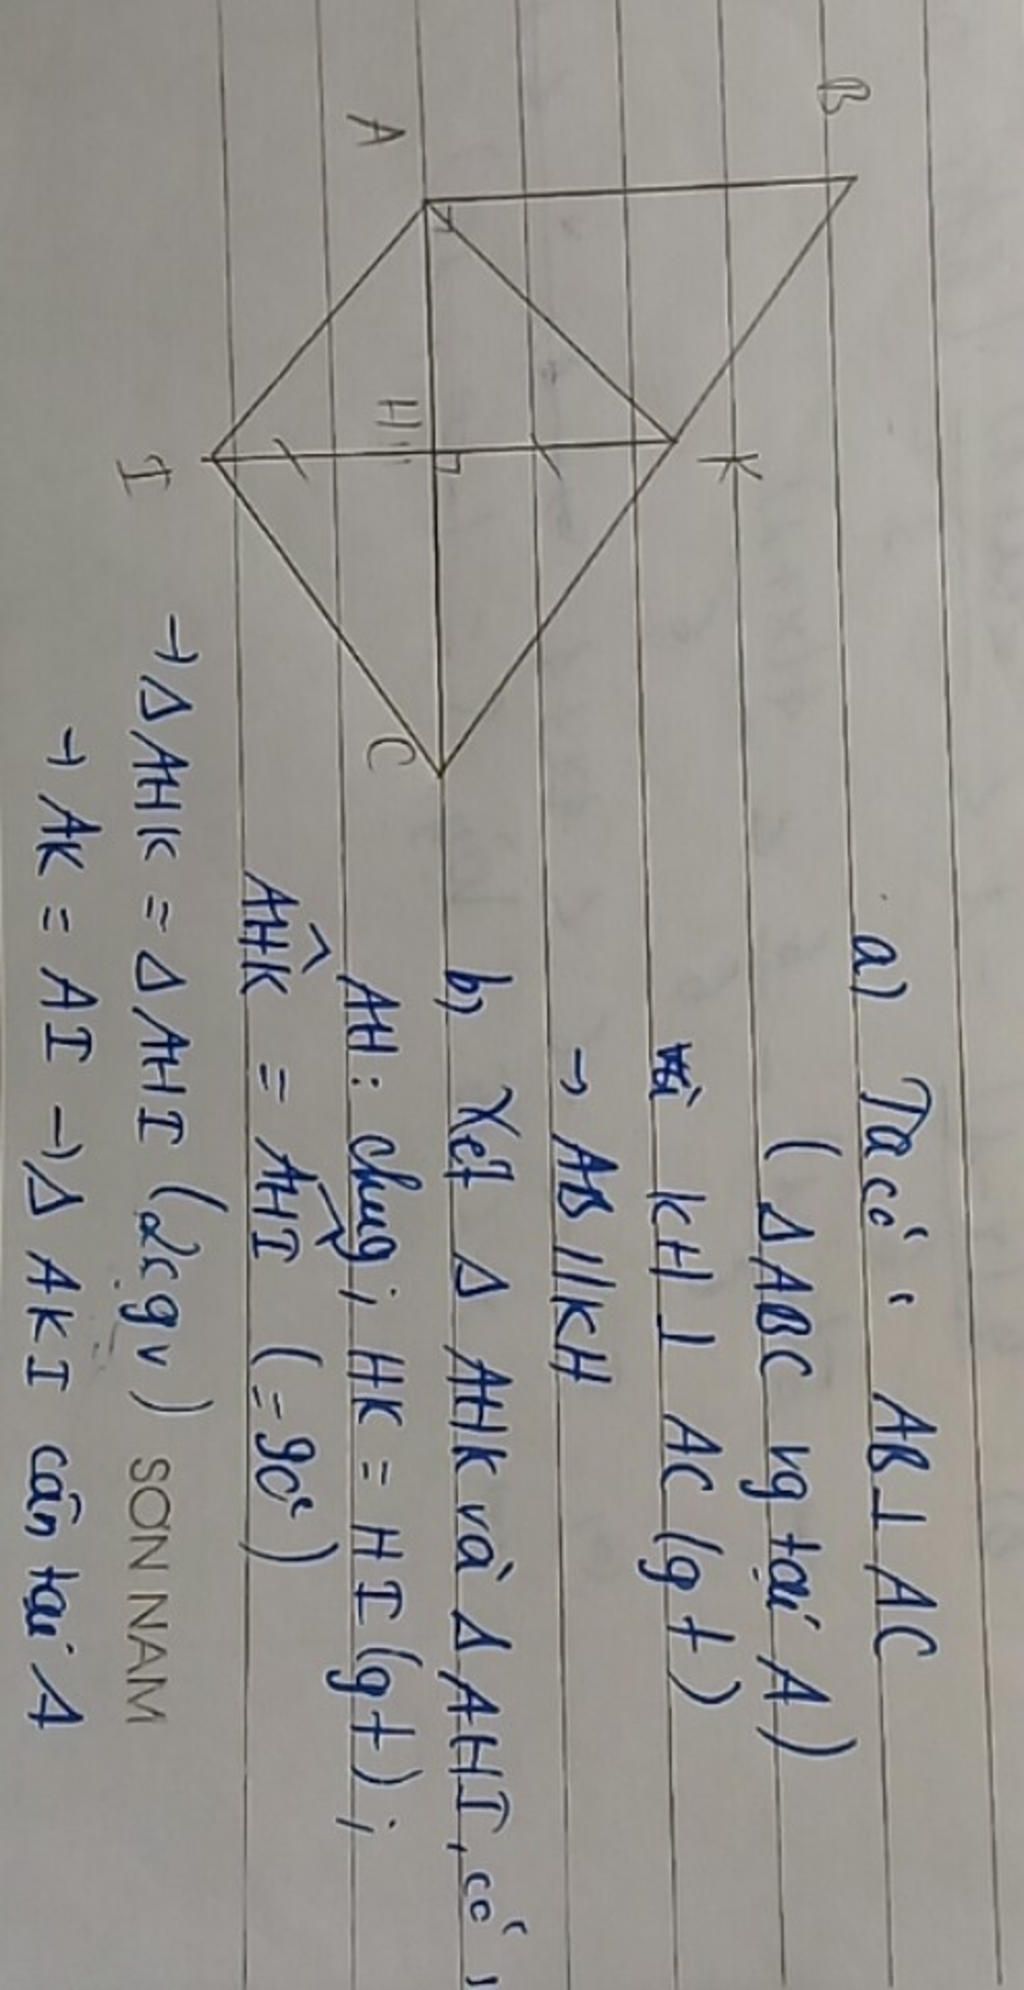 B
A
K
H
I
C
a) Ta có: AB ⊥ AC
(Δ ABC vg tại A)
và KH ⊥ AC (gt)
→ AB // KH
b) Xét Δ AHK và Δ AHI, có:
AH: chung; HK = HI (gt);
AĤK = AĤI (= 90°)
→ Δ AHK = Δ AHI (2cgv)
SON NAM
→ AK = AI → Δ AKI cân tại A